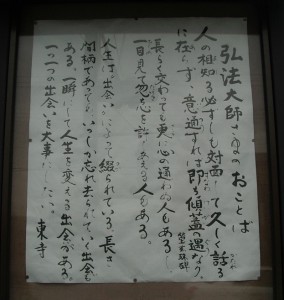 弘法大師さまのおことば
人の相知る必ずしも対面して久しく話る
に在らず、意通ずれば即ち傾蓋の遇なり。
長らく交わっても更に心の通わぬ人もある
一目見て忽ち心を許しあえる人もある。
人生は出会いによって綴られている、長き
間柄であってもいつしか忘れ去られてゆく出会も
ある、一瞬にして人生を変える出会がある。
一つ一つの出会いを大事にしたい。
東寺